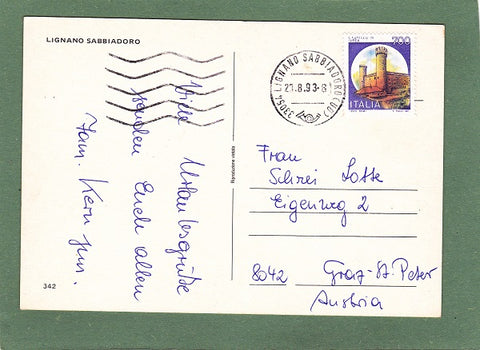 LIGNANO SABBIADORO
Viele Urlaubsgrüße
senden Euch allen
Fam. Kern jun.
342
Riproduzione vietata
33054 LIGNANO SABBIADORO (UD)
21.8.93-8
700
ITALIA
Frau
Schrei Lotte
Eigenweg 2
8042 Graz-St. Peter
Austria